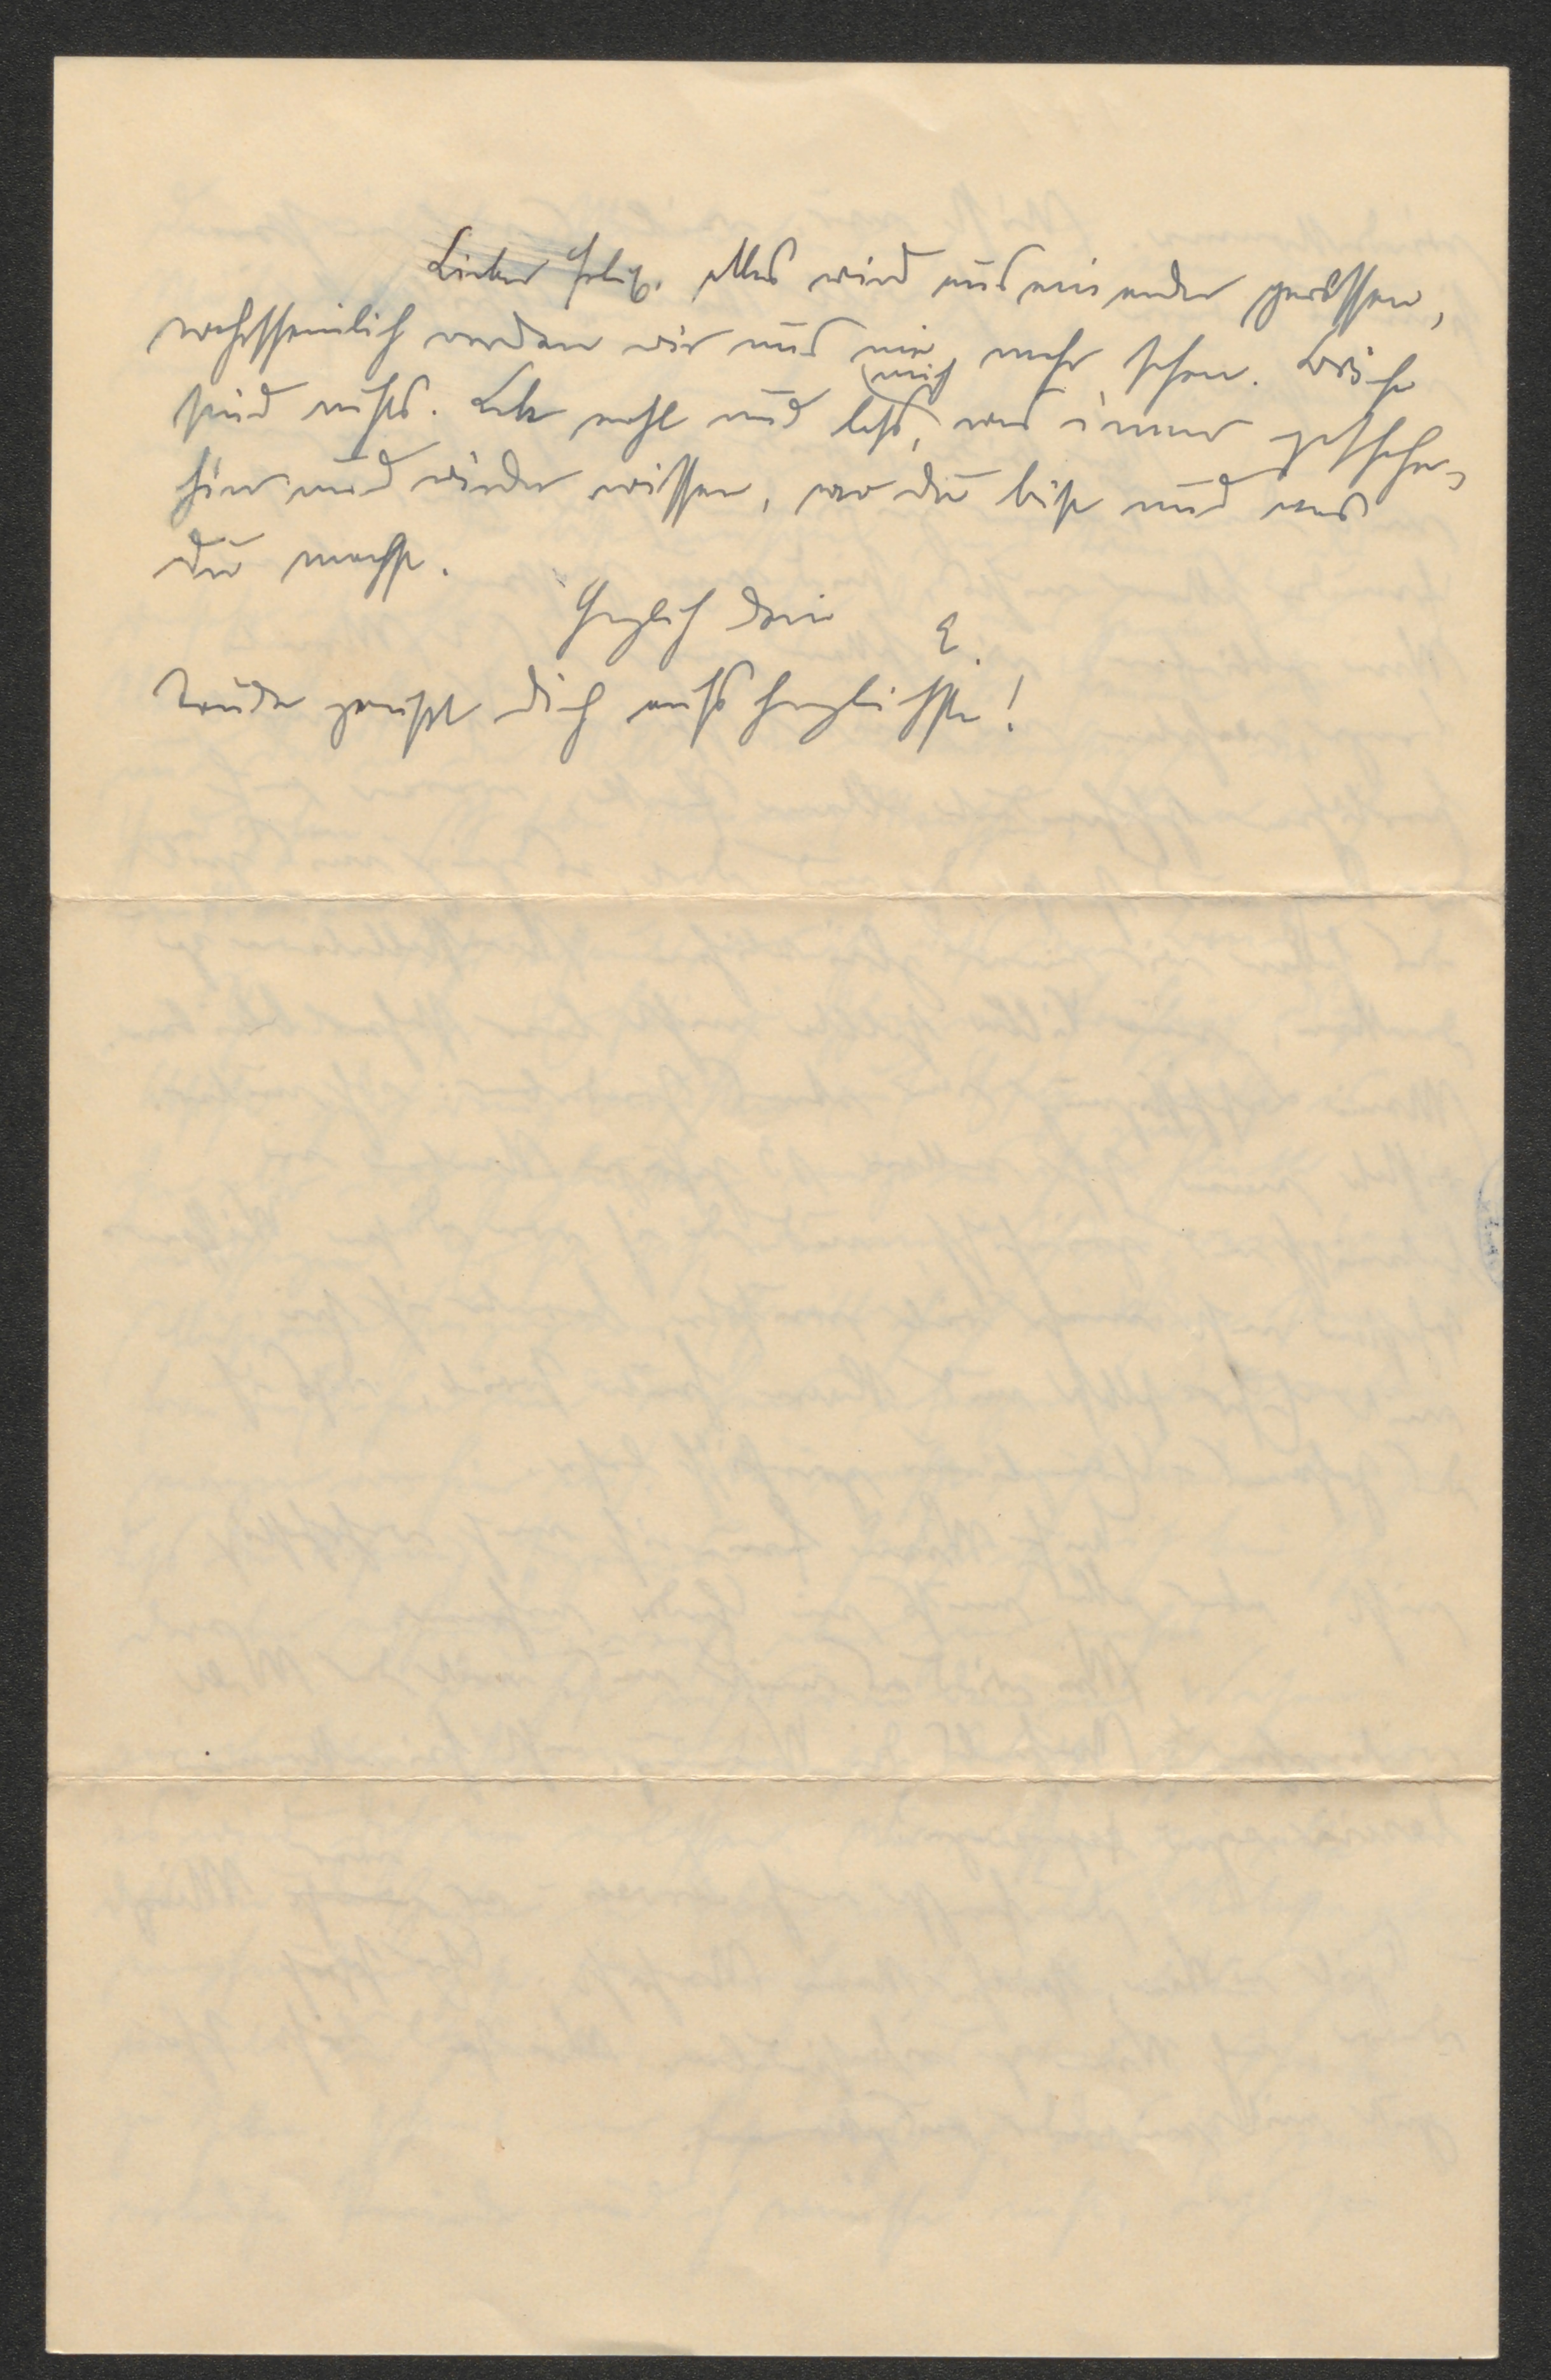 Lieber Felix. Alles wird auseinander gerissen,
wahrscheinlich werden wir uns nie mehr sehen. Briefe
sind nichts. Leb wohl und lass mich, was immer geschehe,
hin und wieder wissen, wo du bist und was
du machst.
Herzlich Dein E.
Trude grüsst Dich aufs herzlichste!